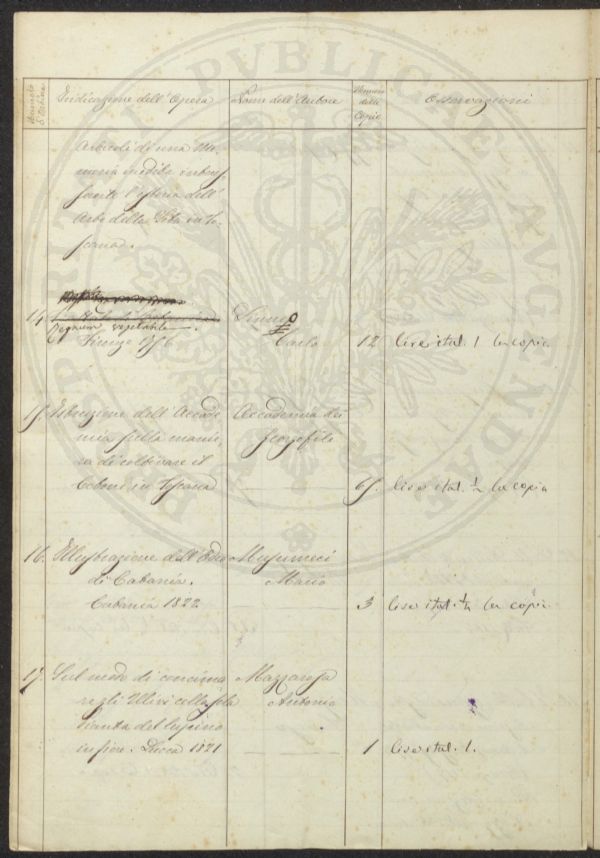 PROSPERITATI PVBLICAE AVGENDAE
Numero d'ordine
Indicazione dell'Opera
Nome dell'Autore
Numero delle Copie
Osservazioni
Articoli di una Me-
moria inedita interes-
sante l'istoria dell'
Arte della Seta in To-
scana.
14.
Regnum vegetabile.
Firenze 1756
Linneo
Carlo
12
lire ital. 1 la copia
15. Istruzione dell'Accade-
mia sulla manie-
ra di coltivare il
Cotone in Toscana
Accademia dei
Georgofili
65.
lire ital. ½ la copia
16. Illustrazione dell'Odeo
di Catania.
Catania 1822
Musumeci
Mario
3
lire ital. ½ la copia
17. Sul modo di concima-
re gli Ulivi colla sola
pianta del lupino
in fiore. Lucca 1821
Mazzarosa
Antonio
1
lire ital. 1.